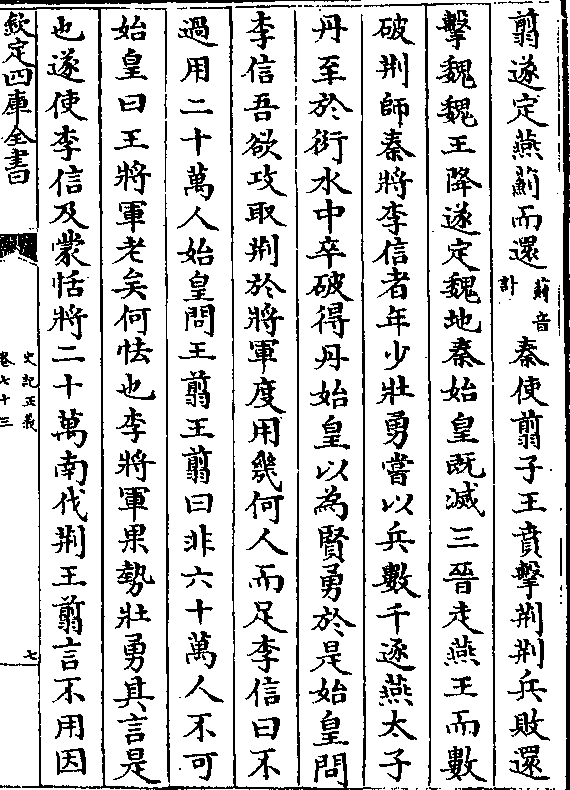 翦遂定燕薊而還薊音計秦使翦子王賁擊荆荆兵敗還
擊魏魏王降遂定魏地秦始皇既滅三晉走燕王而數
破荆師秦將李信者年少壯勇嘗以兵數千逐燕太子
丹至於衍水中卒破得丹始皇以為賢勇於是始皇問
李信吾欲攻取荆於將軍度用幾何人而足李信曰不
過用二十萬人始皇問王翦王翦曰非六十萬人不可
始皇曰王將軍老矣何怯也李將軍果勢壯勇其言是
也遂使李信及蒙恬將二十萬南伐荆王翦言不用因
欽定四庫全書
史記正義
卷七十三
七